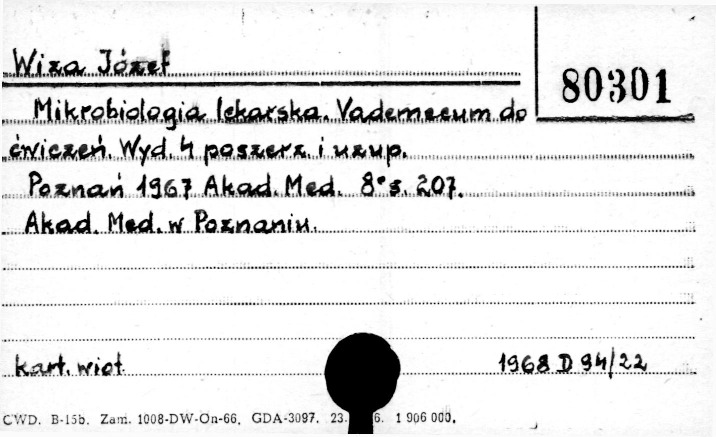 Wiza Józef
80301
Mikrobiologia lekarska. Vademecum do
ćwiczeń. Wyd. 4 poszerz i uzup.
Poznań 1967 Akad. Med. 8° s. 207.
Akad. Med. w Poznaniu.
kart. wiot 1968 D 94/22
CWD. B-15b. Zam. 1008-DW-On-66. GDA-3097. 23. 6. 1 906 000.